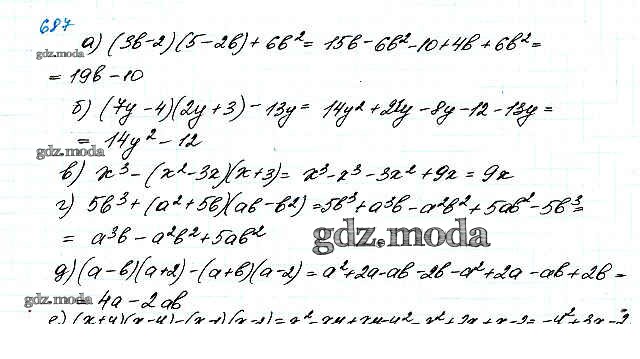 687
а) (3b-2)(5-2b)+6b² = 15b-6b²-10+4b+6b² =
gdz.moda
= 19b-10
б) (7y-4)(2y+3)-13y = 14y²+21y-8y-12-13y =
= 14y²-12
gdz.moda
в) x³-(x²-3x)(x+3) = x³-x³-3x²+9x = 9x
г) 5b³+(a²+5b)(ab-b²) = 5b³+a³b-a²b²+5ab²-5b³ =
= a³b-a²b²+5ab²
gdz.moda
д) (a-b)(a+2)-(a+b)(a-2) = a²+2a-ab-2b-a²+2a-ab+2b =
gdz.moda = 4a-2ab